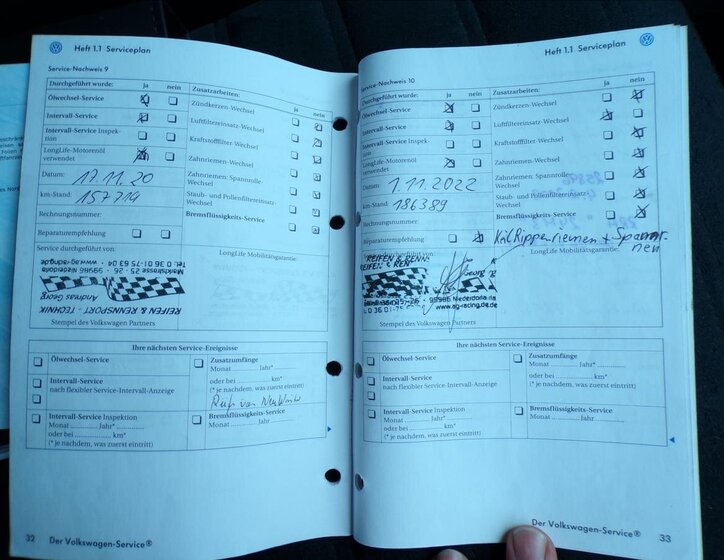 Heft 1.1 Serviceplan
Service-Nachweis 9
Durchgeführt wurde: ja nein
Ölwechsel-Service
Intervall-Service
Intervall-Service Inspektion
LongLife-Motorenöl verwendet
Datum: 17.11.20
km-Stand: 157719
Rechnungsnummer:
Reparaturempfehlung
Zusatzarbeiten: ja nein
Zündkerzen-Wechsel
Luftfiltereinsatz-Wechsel
Kraftstofffilter-Wechsel
Zahnriemen-Wechsel
Zahnriemen: Spannrolle-Wechsel
Staub- und Pollenfiltereinsatz-Wechsel
Bremsflüssigkeits-Service
Service durchgeführt von:
LongLife Mobilitätsgarantie:
REIFEN & RENNSPORT - TECHNIK
Andreas Georg
Marktstrasse 25 - 26 - 99986 Niederdorla
Tel. 0 36 01-75 63 04 - www.ag-racing.de
Stempel des Volkswagen Partners
Ihre nächsten Service-Ereignisse
Ölwechsel-Service
Intervall-Service
nach flexibler Service-Intervall-Anzeige
Intervall-Service Inspektion
Monat ............ Jahr*............
oder bei ............ km*
(* je nachdem, was zuerst eintritt)
Zusatzumfänge
Monat ............ Jahr*............
oder bei ............ km*
(* je nachdem, was zuerst eintritt)
Bremsflüssigkeits-Service
Monat ............ Jahr............
32 Der Volkswagen-Service®
Heft 1.1 Serviceplan
Service-Nachweis 10
Durchgeführt wurde: ja nein
Ölwechsel-Service
Intervall-Service
Intervall-Service Inspektion
LongLife-Motorenöl verwendet
Datum: 1.11.2022
km-Stand: 186389
Rechnungsnummer:
Reparaturempfehlung
Zusatzarbeiten: ja nein
Zündkerzen-Wechsel
Luftfiltereinsatz-Wechsel
Kraftstofffilter-Wechsel
Zahnriemen-Wechsel
Zahnriemen: Spannrolle-Wechsel
Staub- und Pollenfiltereinsatz-Wechsel
Bremsflüssigkeits-Service
LongLife Mobilitätsgarantie:
REIFEN & RENN
99986 Niederdorla
www.ag-racing.de
Stempel des Volkswagen Partners
Ihre nächsten Service-Ereignisse
Ölwechsel-Service
Intervall-Service
nach flexibler Service-Intervall-Anzeige
Intervall-Service Inspektion
Monat ............ Jahr*............
oder bei ............ km*
(* je nachdem, was zuerst eintritt)
Zusatzumfänge
Monat ............ Jahr*............
oder bei ............ km*
(* je nachdem, was zuerst eintritt)
Bremsflüssigkeits-Service
Monat ............ Jahr............
Der Volkswagen-Service® 33